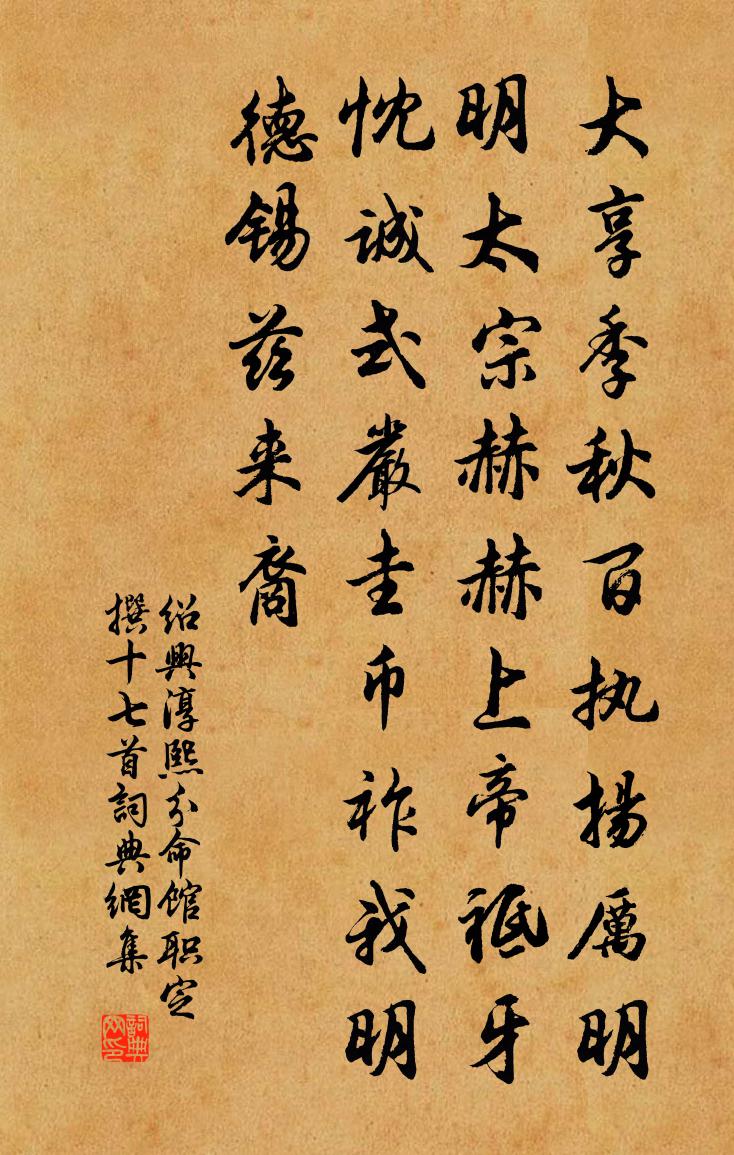 大享季秋百执揚厲明
明太宗赫赫上帝祗牙
忱誠式嚴圭币祚我明
德錫兹来裔
绍興淳熙分命馆职定
撰十七首詞典網集
詞典
网印